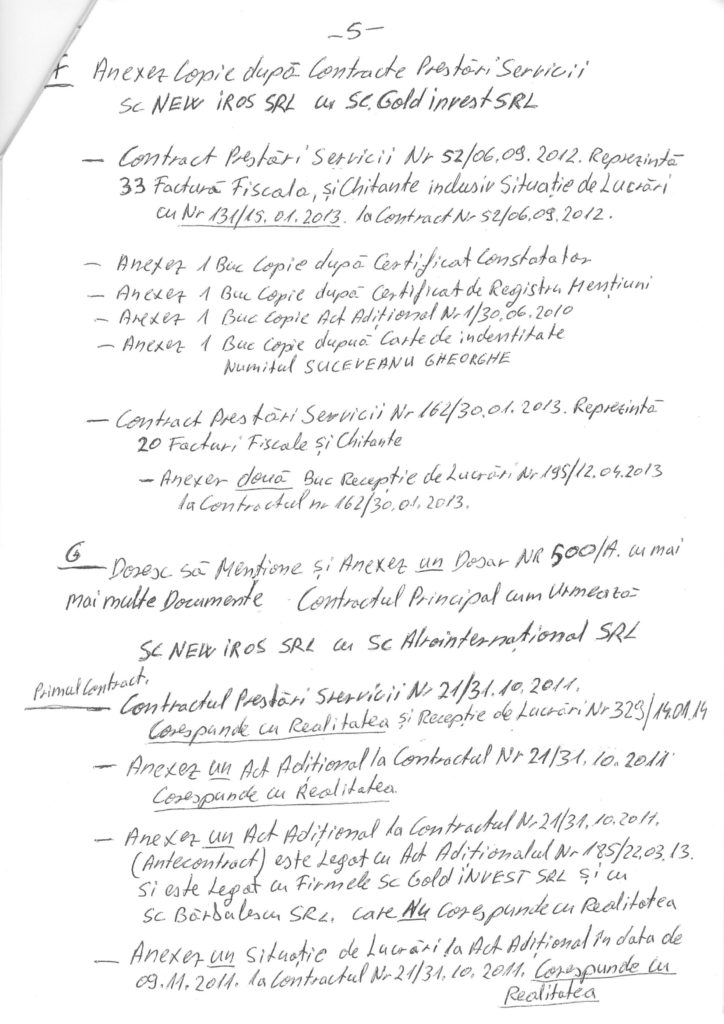 -5-
F Anexez Copie după Contracte Prestări Servicii
SC NEW iROS SRL cu SC Gold invest SRL
- Contract Prestări Servicii Nr 52/06.09.2012. Reprezintă
33 Factură Fiscala, și Chitante inclusiv Situație de Lucrări
cu Nr 131/15.01.2013. la Contract Nr 52/06.09.2012.
- Anexez 1 Buc Copie după Certificat Constatator
- Anexez 1 Buc Copie după Certificat de Registru Mențiuni
- Anexez 1 Buc Copie Act Adițional Nr 1/30.06.2010
- Anexez 1 Buc Copie dupuă Carte de indentitate
Numitul SUCEVEANU GHEORGHE
- Contract Prestări Servicii Nr 162/30.01.2013. Reprezintă
20 Facturi Fiscale și Chitante
- Anexez două Buc Recepție de Lucrări Nr 195/12.04.2013
la Contractul nr 162/30.01.2013.
G - Doresc să Mențione și Anexez un Dosar NR 500/A. cu mai
mai multe Documente Contractul Principal cum Urmează
SC NEW iROS SRL cu SC Alrointernațional SRL
Primul Contract.
- Contractul Prestări Servicii Nr 21/31.10.2011.
Corespunde cu Realitatea și Recepție de Lucrări Nr 329/14.01.14
- Anexez un Act Adițional la Contractul Nr 21/31.10.2011
Corespunde cu Realitatea
- Anexez un Act Adițional la Contractul Nr 21/31.10.2011.
(Antecontract) este Legat cu Act Adiționalul Nr 185/22.03.13.
Si este Legat cu Firmele SC Gold iNVEST SRL și cu
SC Bărbulescu SRL. care Nu Corespunde cu Realitatea
- Anexez un Situație de Lucrări la Act Adițional în data de
09.11.2011. la Contractul Nr 21/31.10.2011. Corespunde cu
Realitatea